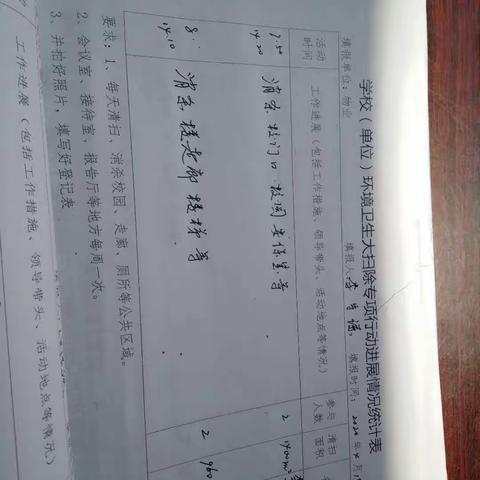 学校（单位）环境卫生大扫除专项行动进展情况统计表
填报单位：物业 填报人： 填报时间：2020年4月1
活动时间 工作进展（包括工作措施、领导带头、活动地点等情况） 参与人数 清扫面积
7:50
14:20 消杀校门口 校园 安保室等 2 1400m²
8:
14:10 消杀楼走廊楼梯等 2 960
要求：1、每天清扫、消杀校园、走廊、厕所等公共区域。
2、会议室、接待室、报告厅等地方每周一次。
3、并拍好照片，填写好登记表
工作进展（包括工作措施、领导带头、活动地点等情况）